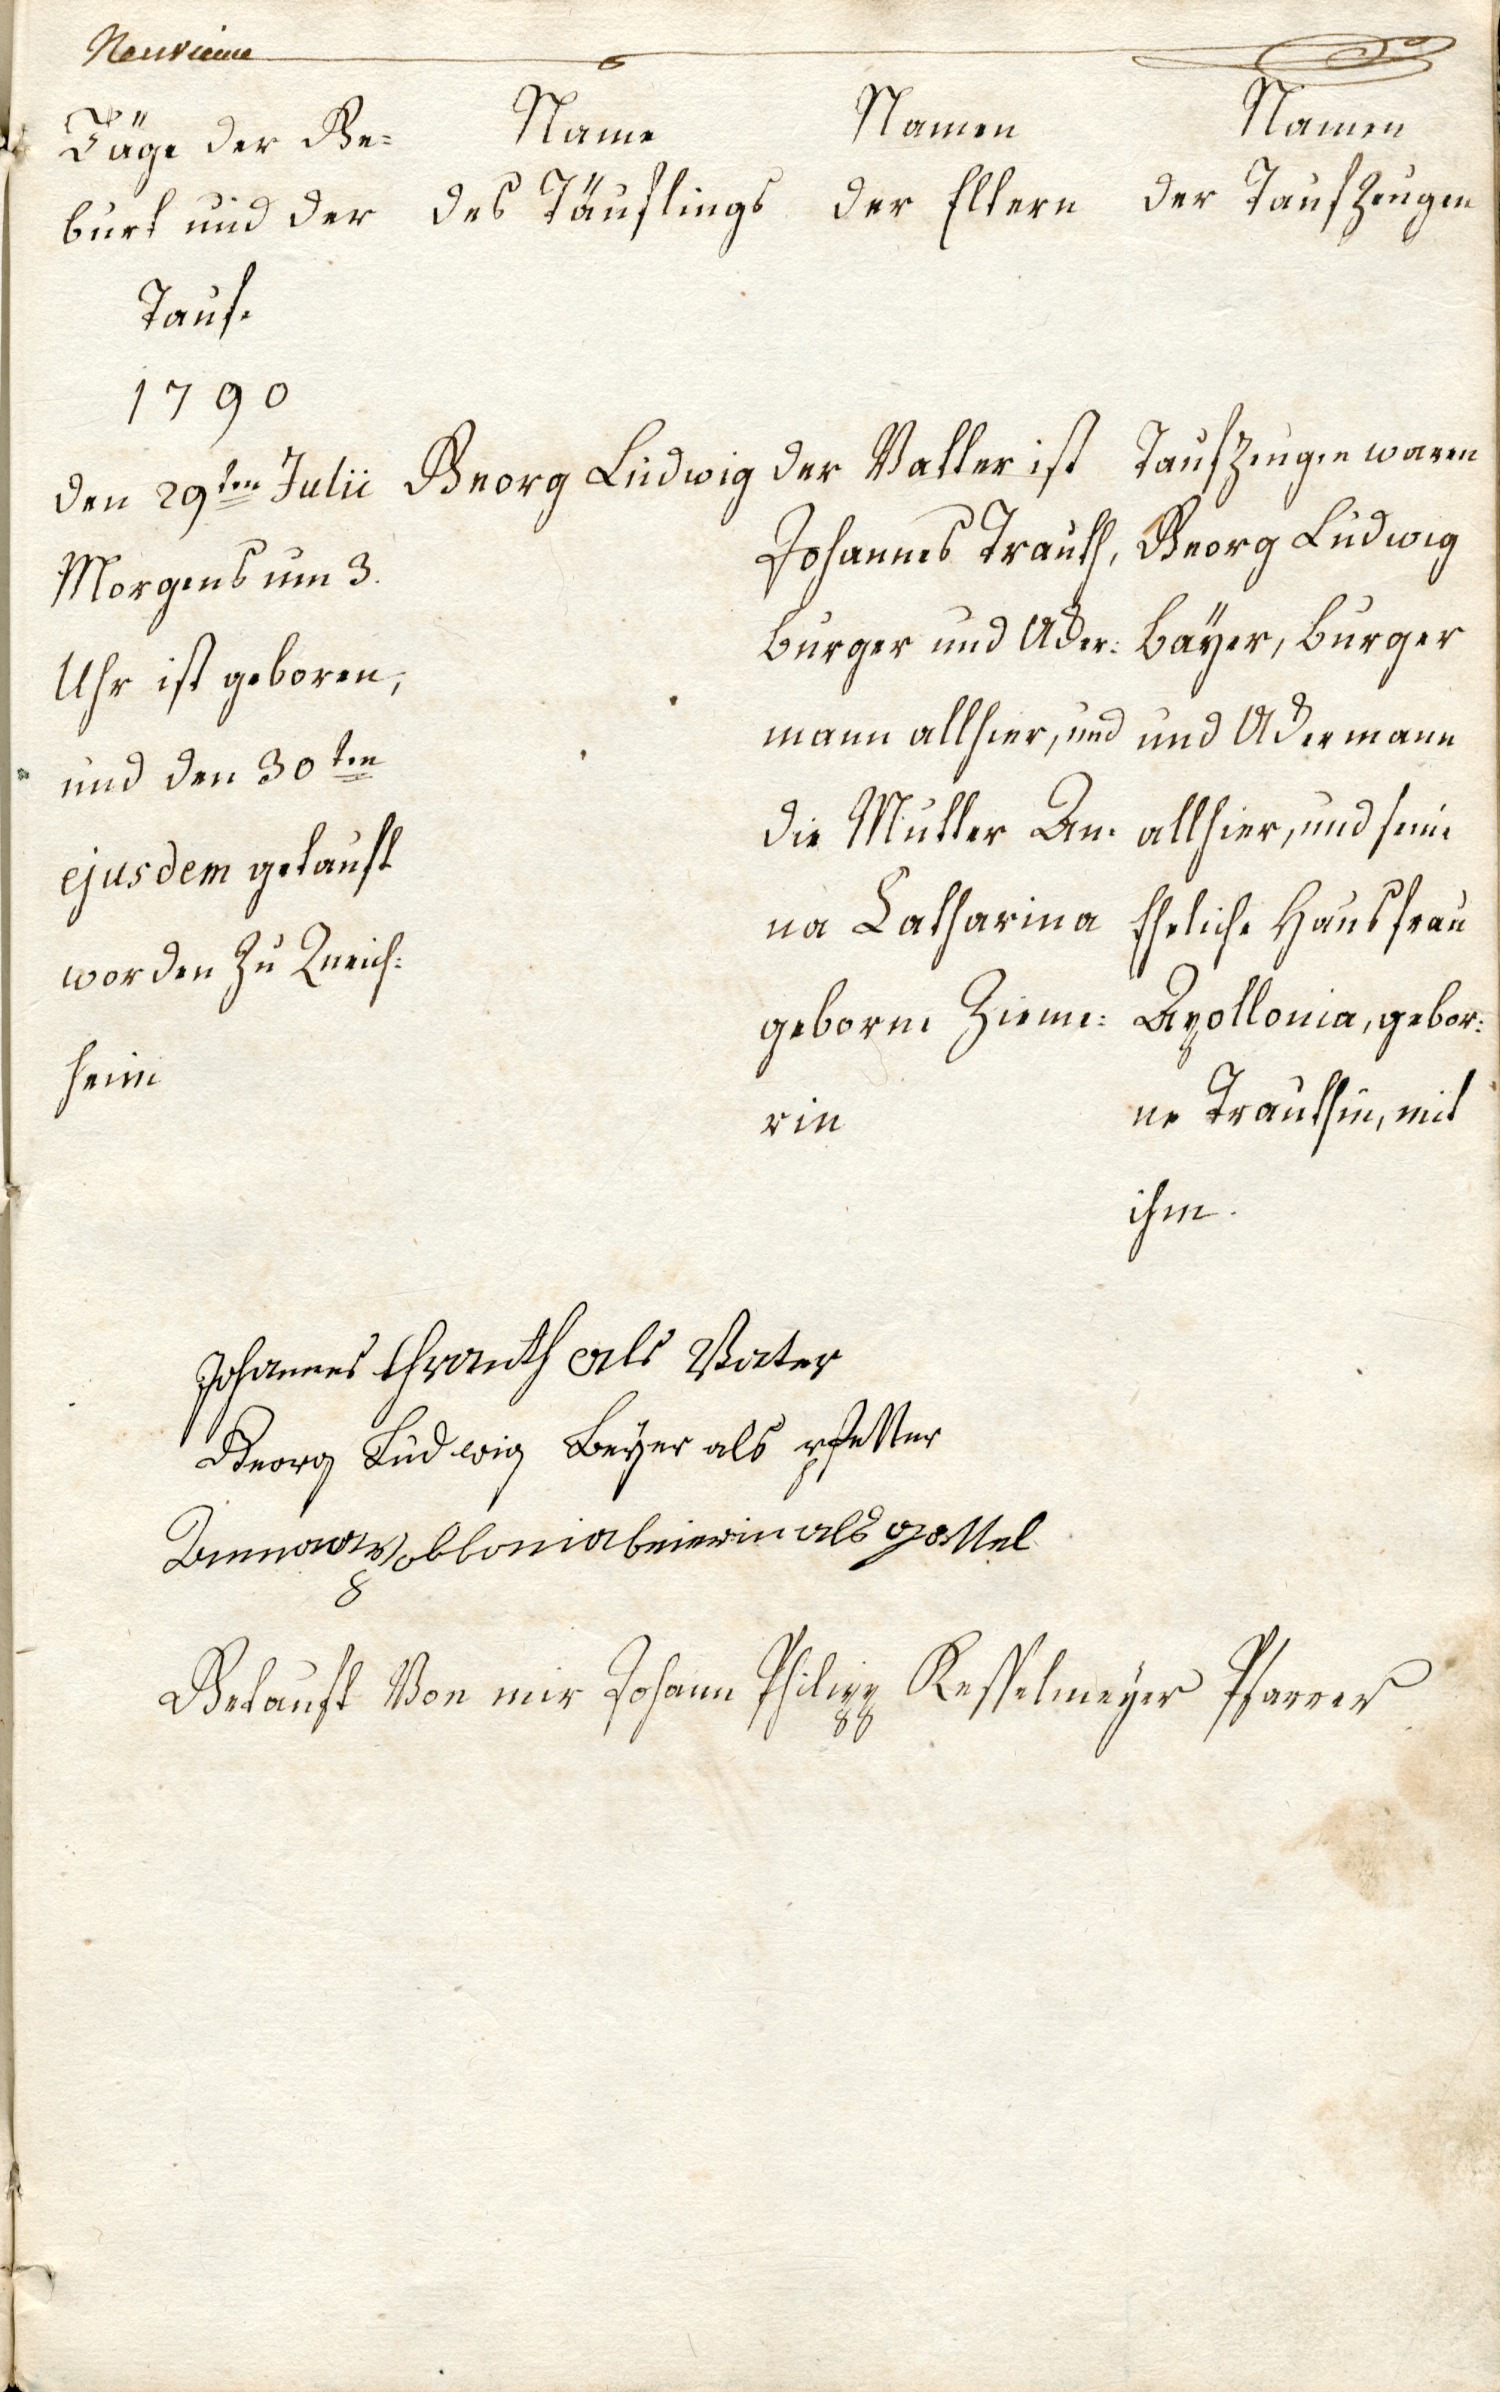 Neuvieme
Täge der Ge=
burt und der
Tauf.
1790
Name
des Täuflings
Namen
der Eltern
Namen
der Taufzeugen
den 29ten Julii
Morgens um 3.
Uhr ist geboren,
und den 30ten
ejusdem getauft
worden zu Queich=
heim
Georg Ludwig
der Vatter ist
Johannes Trauth,
burger und Acker=
mann allhier, und
die Mutter An=
na Catharina
geborne Zieme=
rin
Taufzeugen waren
Georg Ludwig
Bäyer, burger
und Ackermann
allhier, und seine
Eheliche Hausfrau
Apollonia, gebor=
ne Trauthin, mit
ihm.
Johannes thrauth als Vater
Georg Ludwig Beÿer als pfetter
beierin als gottel
Getauft Von mir Johann Philipp Kesselmeÿer Pfarrer